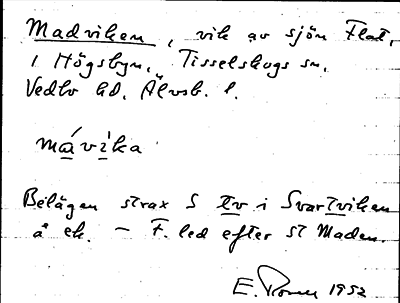 Madviken, vik av sjön Flat,
i Högsbyn, Tisselskogs sn,
Vedbo hd, Älvsb. l.
mávika
Belägen strax S tv i Svartviken
å ek. — F. led efter st Maden.
E. 1952